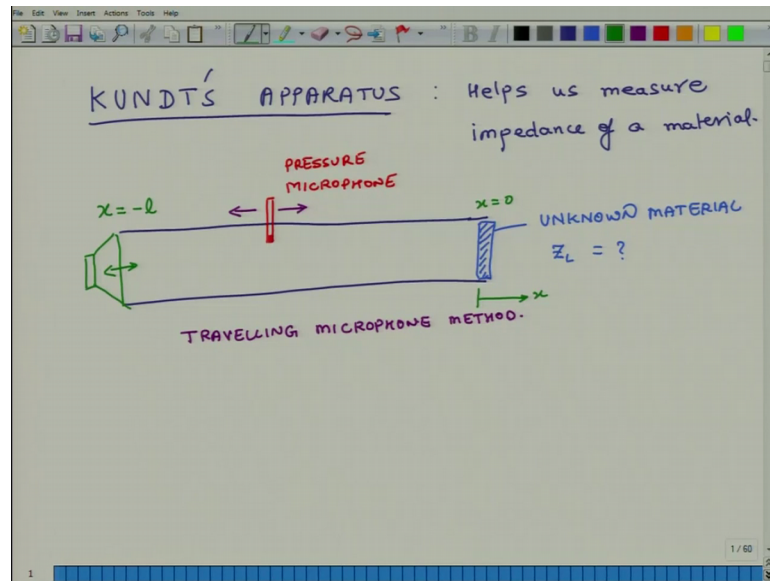 File Edit View Insert Actions Tools Help
KUNDT'S APPARATUS : Helps us measure
impedance of a material.
PRESSURE
MICROPHONE
x=-l
x=0
UNKNOWN MATERIAL
Z_L = ?
x
TRAVELLING MICROPHONE METHOD.
1 / 60
1